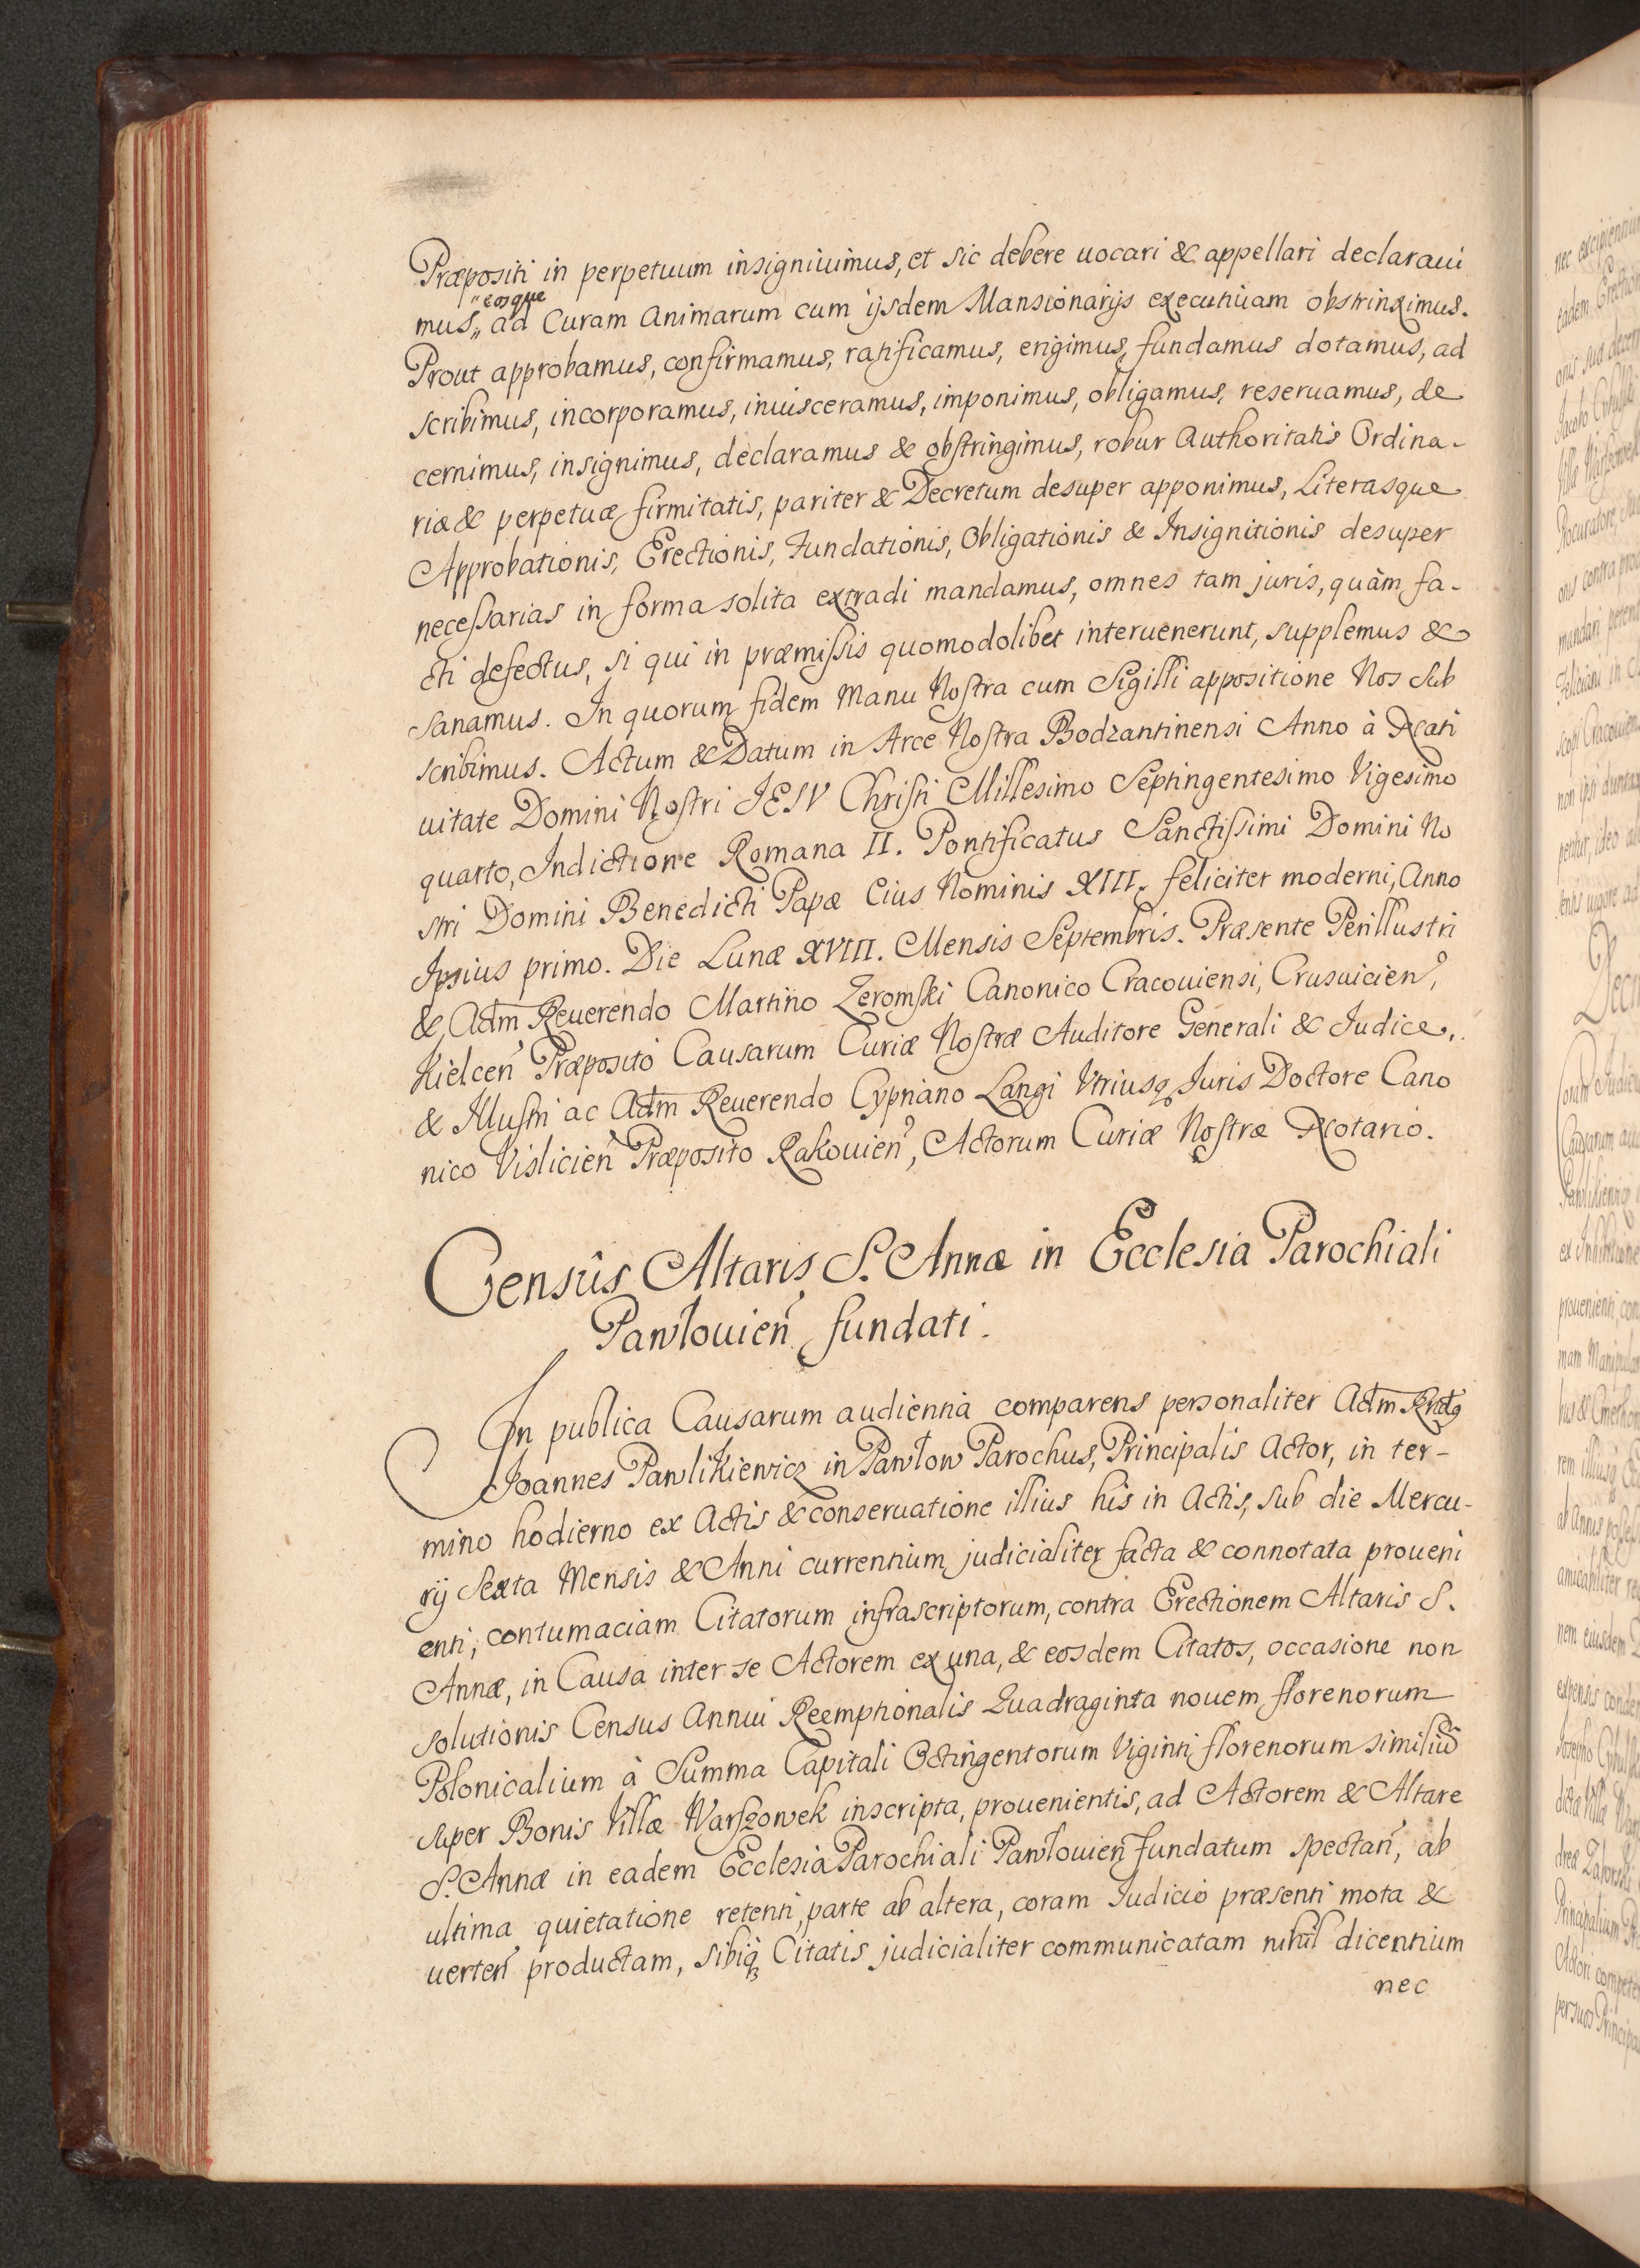 Præpositi in perpetuum insigniuimus, et sic debere uocari & appellari declaraui
mus,, "eosque ad Curam Animarum cum ijsdem Mansionarijs executiuam obstrinximus.
Prout approbamus, confirmamus, ratificamus, erigimus, fundamus dotamus, ad
scribimus, incorporamus, inuisceramus, imponimus, obligamus, reseruamus, de
cernimus, insignimus, declaramus & obstringimus, robur Authoritatis Ordina-
riæ & perpetuæ firmitatis, pariter & Decretum desuper apponimus, Literasque
Approbationis, Erectionis, Fundationis, Obligationis & Insignitionis desuper
necessarias in forma solita extradi mandamus, omnes tam juris, quàm fa-
cti defectus, si qui in præmissis quomodolibet interuenerunt, supplemus &
sanamus. In quorum fidem Manu Nostra cum Sigilli appositione Nos Sub
scribimus. Actum & Datum in Arce Nostra Bodzantinensi Anno à Nati
uitate Domini Nostri IESV Christi Millesimo Septingentesimo Vigesimo
quarto, Indictione Romana II. Pontificatus Sanctissimi Domini No
stri Domini Benedicti Papæ Eius Nominis XIII. feliciter moderni, Anno
Ipsius primo. Die Lunæ XVIII. Mensis Septembris. Præsente Perillustri
& Adm Reuerendo Martino Zeromski Canonico Cracouiensi, Crusuicien̄,
Kielcen̄ Præposito Causarum Curiæ Nostræ Auditore Generali & Iudice,
& Illustri ac Adm Reuerendo Cypriano Langi Vtriusq Iuris Doctore Cano
nico Vislicien̄ Præposito Rakouien̄, Actorum Curiæ Nostræ Notario.
Censûs Altaris S. Annæ in Ecclesia Parochiali
Pawłouien̄ fundati.
In publica Causarum audientia comparens personaliter Adm Rndq
Joannes Pawlikiewicz in Pawłow Parochus, Principalis Actor, in ter-
mino hodierno ex Actis & conseruatione illius his in Actis, sub die Mercu-
rij Sexta Mensis & Anni currentium judicialiter facta & connotata proueni
enti, contumaciam Citatorum infrascriptorum, contra Erectionem Altaris S.
Annæ, in Causa inter se Actorem ex una, & eosdem Citatos, occasione non
solutionis Census Annui Reemptionalis Quadraginta nouem florenorum
Polonicalium à Summa Capitali Octingentorum Viginti florenorum similiũ
super Bonis Villæ Warszowek inscripta, prouenientis, ad Actorem & Altare
S. Annæ in eadem Ecclesia Parochiali Pawłouien̄ fundatum spectan̄, ab
ultima quietatione retenti, parte ab altera, coram Iudicio præsenti mota &
uerten̄ productam, sibiq Citatis judicialiter communicatam nihil dicentium
nec